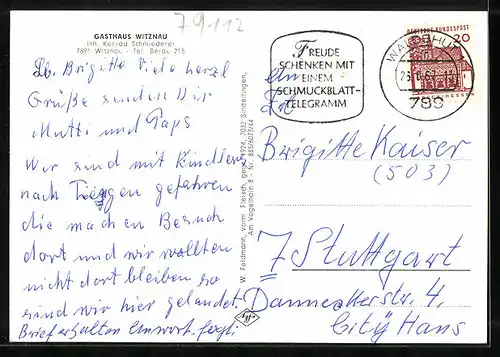 79112
GASTHAUS WITZNAU
Inh. Konrad Schmiederer
7891 Witznau - Tel. Berau 215
Lb. Brigitte Viele herzl
Grüße senden Dir
Mutti und Paps
Wir sind mit Kindlers
nach gefahren
die machen Besuch
dort und wir wollten
nicht dort bleiben so
sind wir hier gelandet
Brief erhalten Antwort folgt
W. Feldmann, vorm. Fleisch, gegr. 1924, 7032 Sindelfingen,
Am Vogelhain 8 - Nr. 885/6073/44
FREUDE
SCHENKEN MIT
EINEM
SCHMUCKBLATT-
TELEGRAMM
DEUTSCHE BUNDESPOST
20
WALDSHUT
789
An
Frl.
Brigitte Kaiser
(503)
7 Stuttgart
Dannecker str. 4.
City Haus